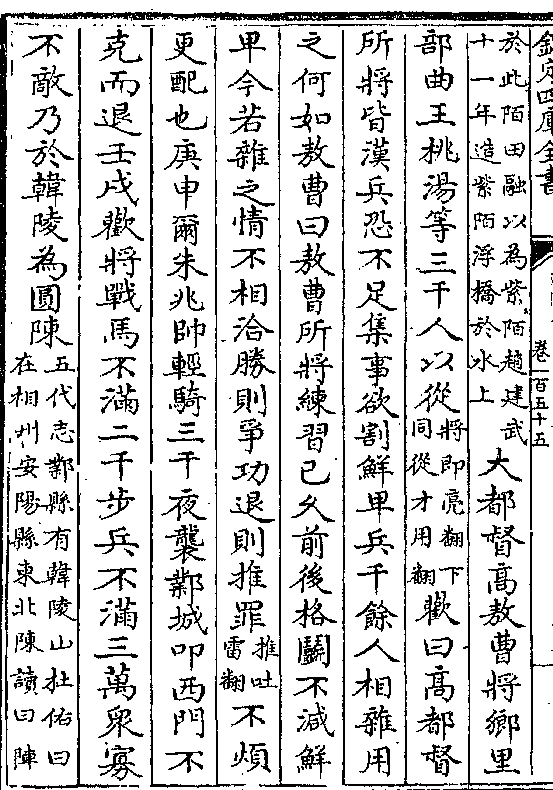 欽定四庫全書
卷一百五十五
於此陌田融以為紫陌趙建武
十一年造紫陌浮橋於水上
大都督髙敖曹將鄉里
部曲王桃湯等三千人以從
將即亮翻下
同從才用翻
歡曰髙都督
所將皆漢兵恐不足集事欲割鮮卑兵千餘人相雜用
之何如敖曹曰敖曹所將練習已久前後格鬭不減鮮
卑今若雜之情不相洽勝則爭功退則推罪
推吐
雷翻
不煩
更配也庚申爾朱兆帥輕騎三千夜襲鄴城叩西門不
克而退壬戌歡將戰馬不滿二千步兵不滿三萬衆寡
不敵乃於韓陵為圓陳
五代志鄴縣有韓陵山杜佑曰
在相州安陽縣東北陳讀曰陣